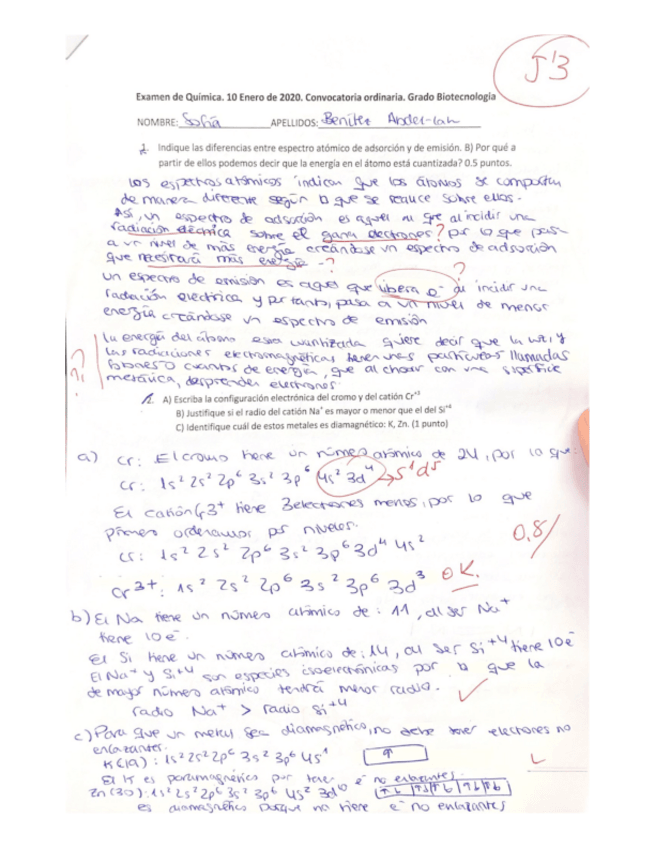 5'3
Examen de Química. 10 Enero de 2020. Convocatoria ordinaria. Grado Biotecnología
NOMBRE: Sofía APELLIDOS: Benítez Abdel-lah
1. Indique las diferencias entre espectro atómico de adsorción y de emisión. B) Por qué a
partir de ellos podemos decir que la energía en el átomo está cuantizada? 0.5 puntos.
Los espectros atómicos indican que los átomos se comportan
de manera diferente según lo que se realice sobre ellos.
Así, un espectro de adsorción es aquel en que al incidir una
radiación eléctrica sobre el gana electrones? por lo que pasa
a un nivel de más energía creándose un espectro de adsorción
que necesitará más energía -?
?
un espectro de emisión es aquel que libera e- al incidir una
radiación eléctrica y por tanto, pasa a un nivel de menor
energía creándose un espectro de emisión
La energía del átomo esta cuantizada quiere decir que la luz y
las radiaciones electromagnéticas tienen unas partículas llamadas
fotones o cuantos de energía, que al chocar con una superficie
metálica, desprenden electrones.
? ?
2. A) Escriba la configuración electrónica del cromo y del catión Cr+3
B) Justifique si el radio del catión Na+ es mayor o menor que el del Si+4
C) Identifique cuál de estos metales es diamagnético: K, Zn. (1 punto)
a) Cr: El cromo tiene un número atómico de 24, por lo que:
Cr: 1s² 2s² 2p⁶ 3s² 3p⁶ 4s² 3d⁴ → s¹ d⁵
El catión Cr3+ tiene 3 electrones menos, por lo que
primero ordenamos por niveles.
Cr: 1s² 2s² 2p⁶ 3s² 3p⁶ 3d⁴ 4s²
0,8/
Cr³⁺: 1s² 2s² 2p⁶ 3s² 3p⁶ 3d³ OK.
b) El Na tiene un número atómico de: 11, al ser Na⁺
tiene 10 e⁻.
El Si tiene un número atómico de: 14, al ser Si⁺⁴ tiene 10e⁻
El Na⁺ y Si⁺⁴ son especies isoelectrónicas por lo que la
de mayor número atómico tendrá menor radio.
radio Na⁺ > radio Si⁺⁴
c) Para que un metal sea diamagnético, no debe tener electrones no
enlazantes.
K (19): 1s² 2s² 2p⁶ 3s² 3p⁶ 4s¹ ↑
El K es paramagnético por tener e⁻ no enlazantes.
Zn (30): 1s² 2s² 2p⁶ 3s² 3p⁶ 4s² 3d¹⁰ ↑↓ ↑↓ ↑↓ ↑↓ ↑↓
es diamagnético porque no tiene e⁻ no enlazantes